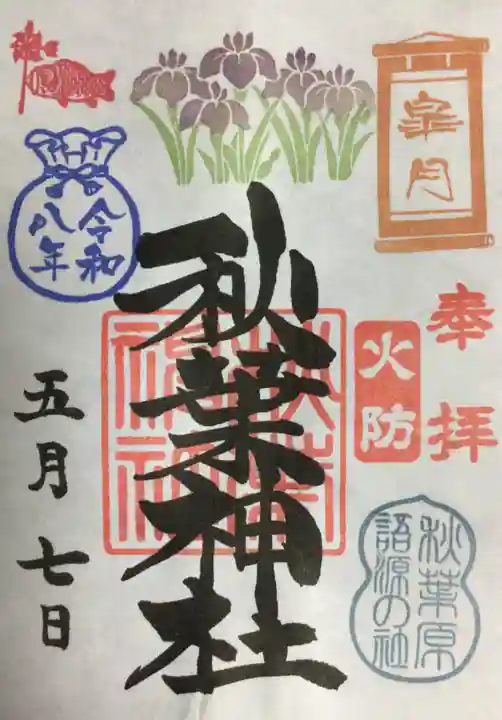 皐月
奉拝
火防
秋葉原
語源の社
秋葉神社
令和
八年
五月七日